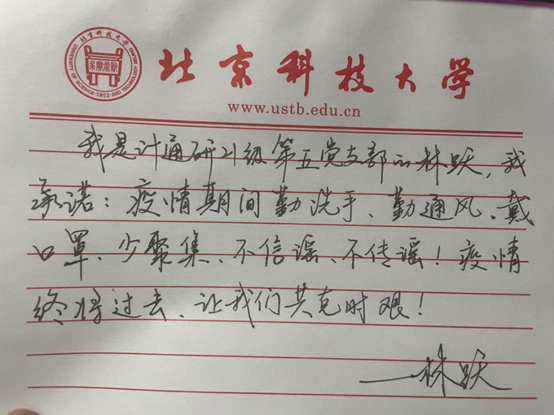 北京科技大学
www.ustb.edu.cn
我是计通研21级第五党支部的林跃,我
承诺:疫情期间勤洗手、勤通风、戴
口罩、少聚集、不信谣、不传谣!疫情
终将过去,让我们共克时艰!
——林跃